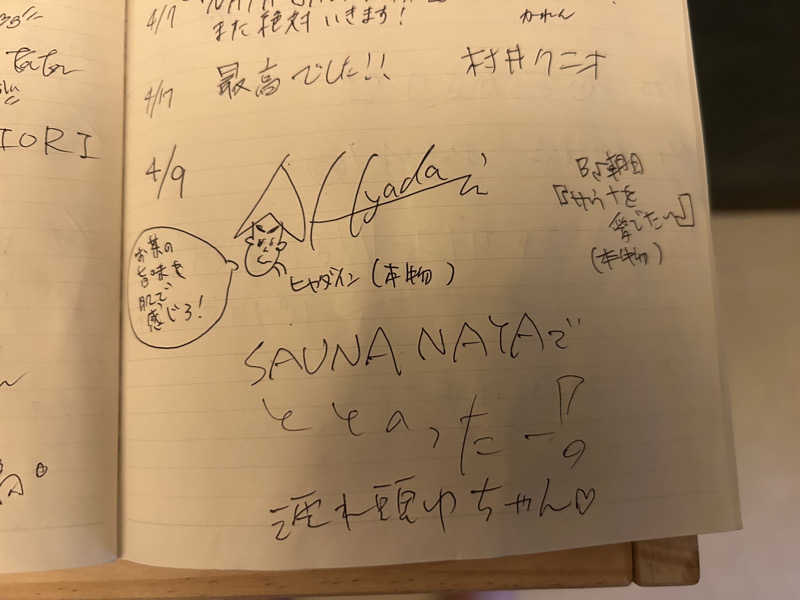 4/7
また絶対いきます!
かれん
4/17
最高でした!!
村井クニオ
IORI
4/9
Hyadain
ヒャダイン(本物)
お茶の
旨味を
肌で、
感じろ!
BS朝日
『サウナを
愛でたい』
(本物)
SAUNA NAYAで
ととのったー!。
頭ゆちゃん♡